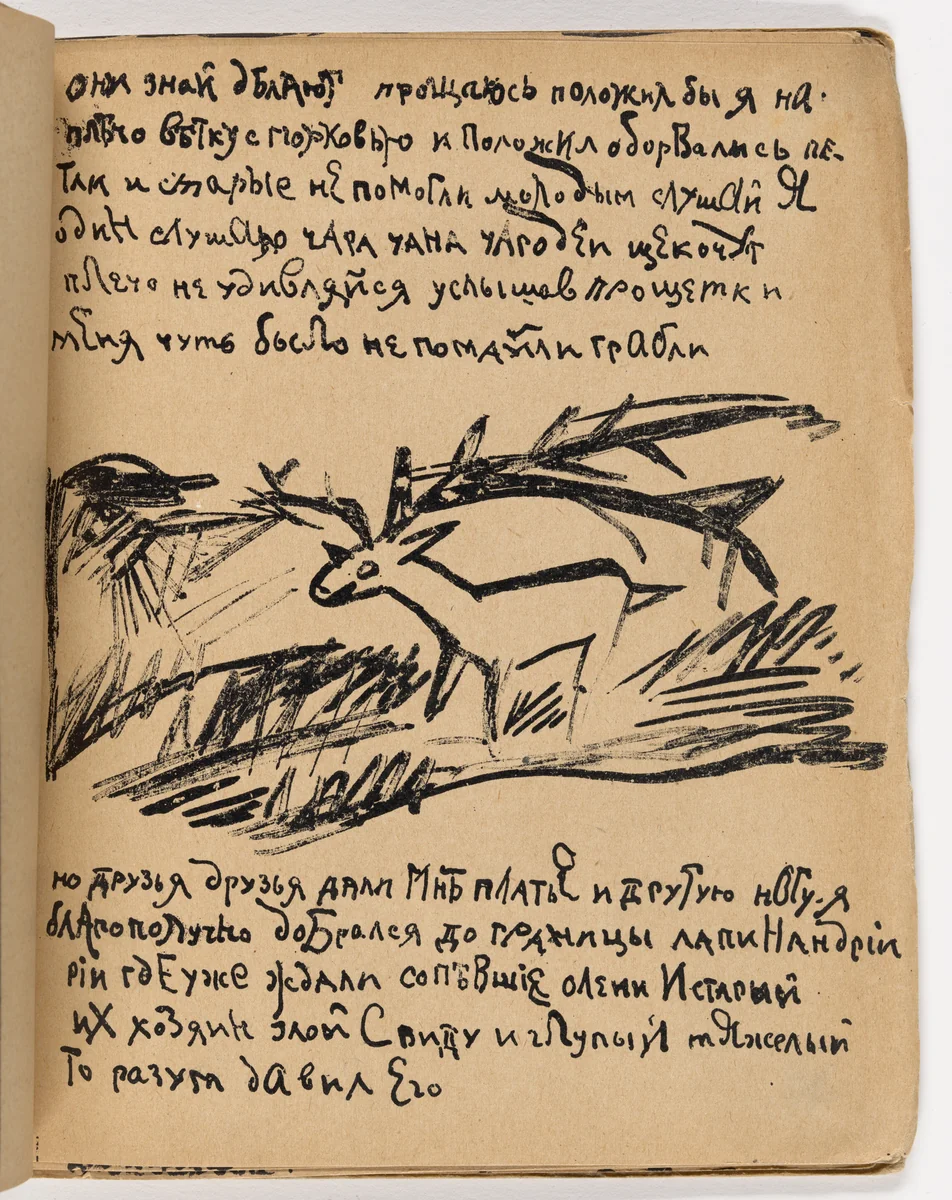 они знай дѣлают прощаюсь положил бы я на
плѣчо вѣтку с морковью и положил оборвались пе-
тли и старые не помогли молодым слушай я
один слушаю чара чана чародеи щекочут
плечо не удивляйся услышав про щетки
меня чуть было не поmайли грабли
но друзья друзья дали мнѣ платье и другую ногу. я
благополучно добрался до границы лапиландріи
ріи где уже ждали сопѣвшіе олени и старый
их хозяин злой с виду и глупый тяжелый
то разум давил его